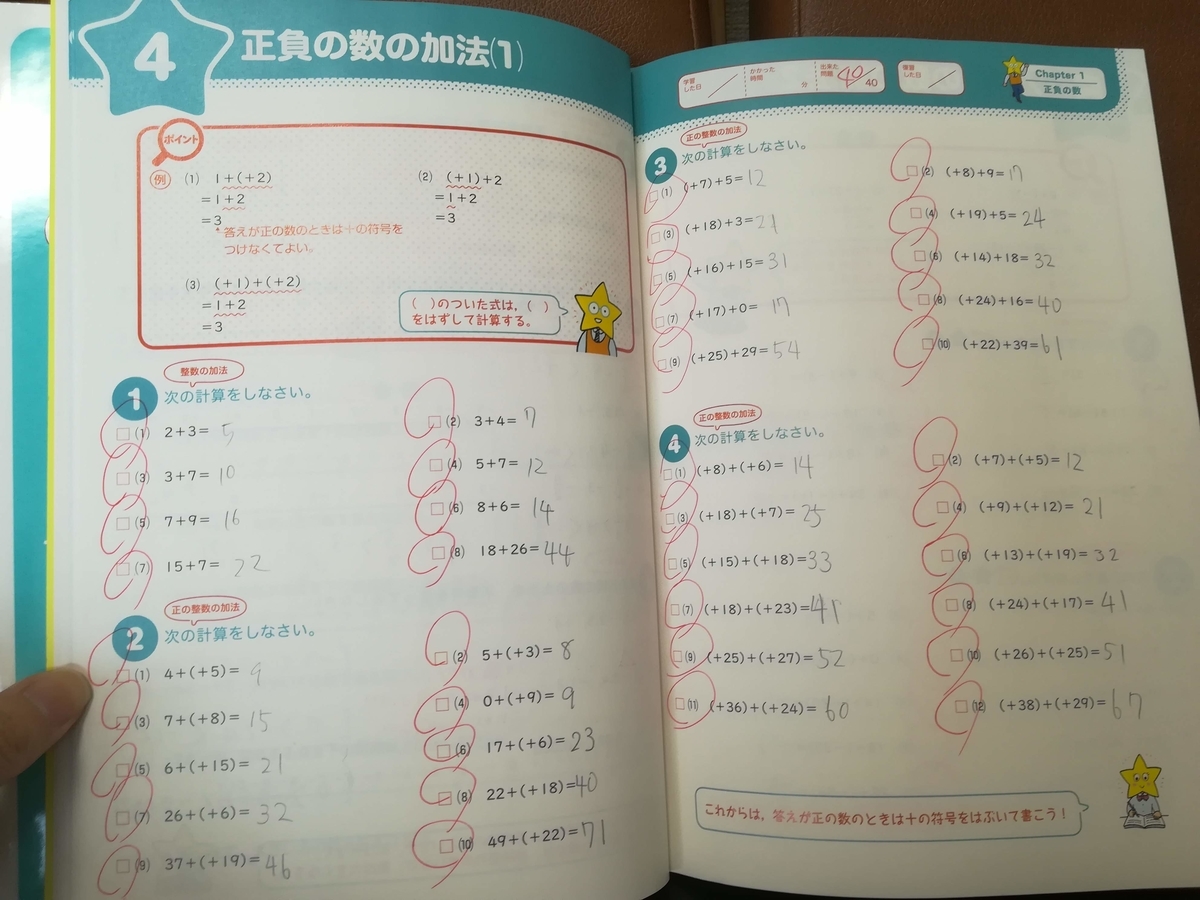 4 正負の数の加法(1)
ポイント
例 (1) 1+(+2)
=1+2
=3
答えが正の数のときは＋の符号を
つけなくてよい。
(2) (+1)+2
=1+2
=3
(3) (+1)+(+2)
=1+2
=3
( )のついた式は, ( )
をはずして計算する。
整数の加法
1 次の計算をしなさい。
(1) 2+3= 5
(2) 3+4= 7
(3) 3+7= 10
(4) 5+7= 12
(5) 7+9= 16
(6) 8+6= 14
(7) 15+7= 22
(8) 18+26= 44
正の整数の加法
2 次の計算をしなさい。
(1) 4+(+5)= 9
(2) 5+(+3)= 8
(3) 7+(+8)= 15
(4) 0+(+9)= 9
(5) 6+(+15)= 21
(6) 17+(+6)= 23
(7) 26+(+6)= 32
(8) 22+(+18)=40
(9) 37+(+19)= 46
(10) 49+(+22)= 71
学習した日
かかった時間 分
出来た問題 40/40
復習した日
Chapter 1
正負の数
正の整数の加法
3 次の計算をしなさい。
(1) (+7)+5= 12
(2) (+8)+9= 17
(3) (+18)+3= 21
(4) (+19)+5= 24
(5) (+16)+15= 31
(6) (+14)+18= 32
(7) (+17)+0= 17
(8) (+24)+16= 40
(9) (+25)+29= 54
(10) (+22)+39= 61
正の整数の加法
4 次の計算をしなさい。
(1) (+8)+(+6)= 14
(2) (+7)+(+5)= 12
(3) (+18)+(+7)= 25
(4) (+9)+(+12)= 21
(5) (+15)+(+18)= 33
(6) (+13)+(+19)= 32
(7) (+18)+(+23)= 41
(8) (+24)+(+17)= 41
(9) (+25)+(+27)= 52
(10) (+26)+(+25)= 51
(11) (+36)+(+24)= 60
(12) (+38)+(+29)= 67
これからは, 答えが正の数のときは＋の符号をはぶいて書こう！